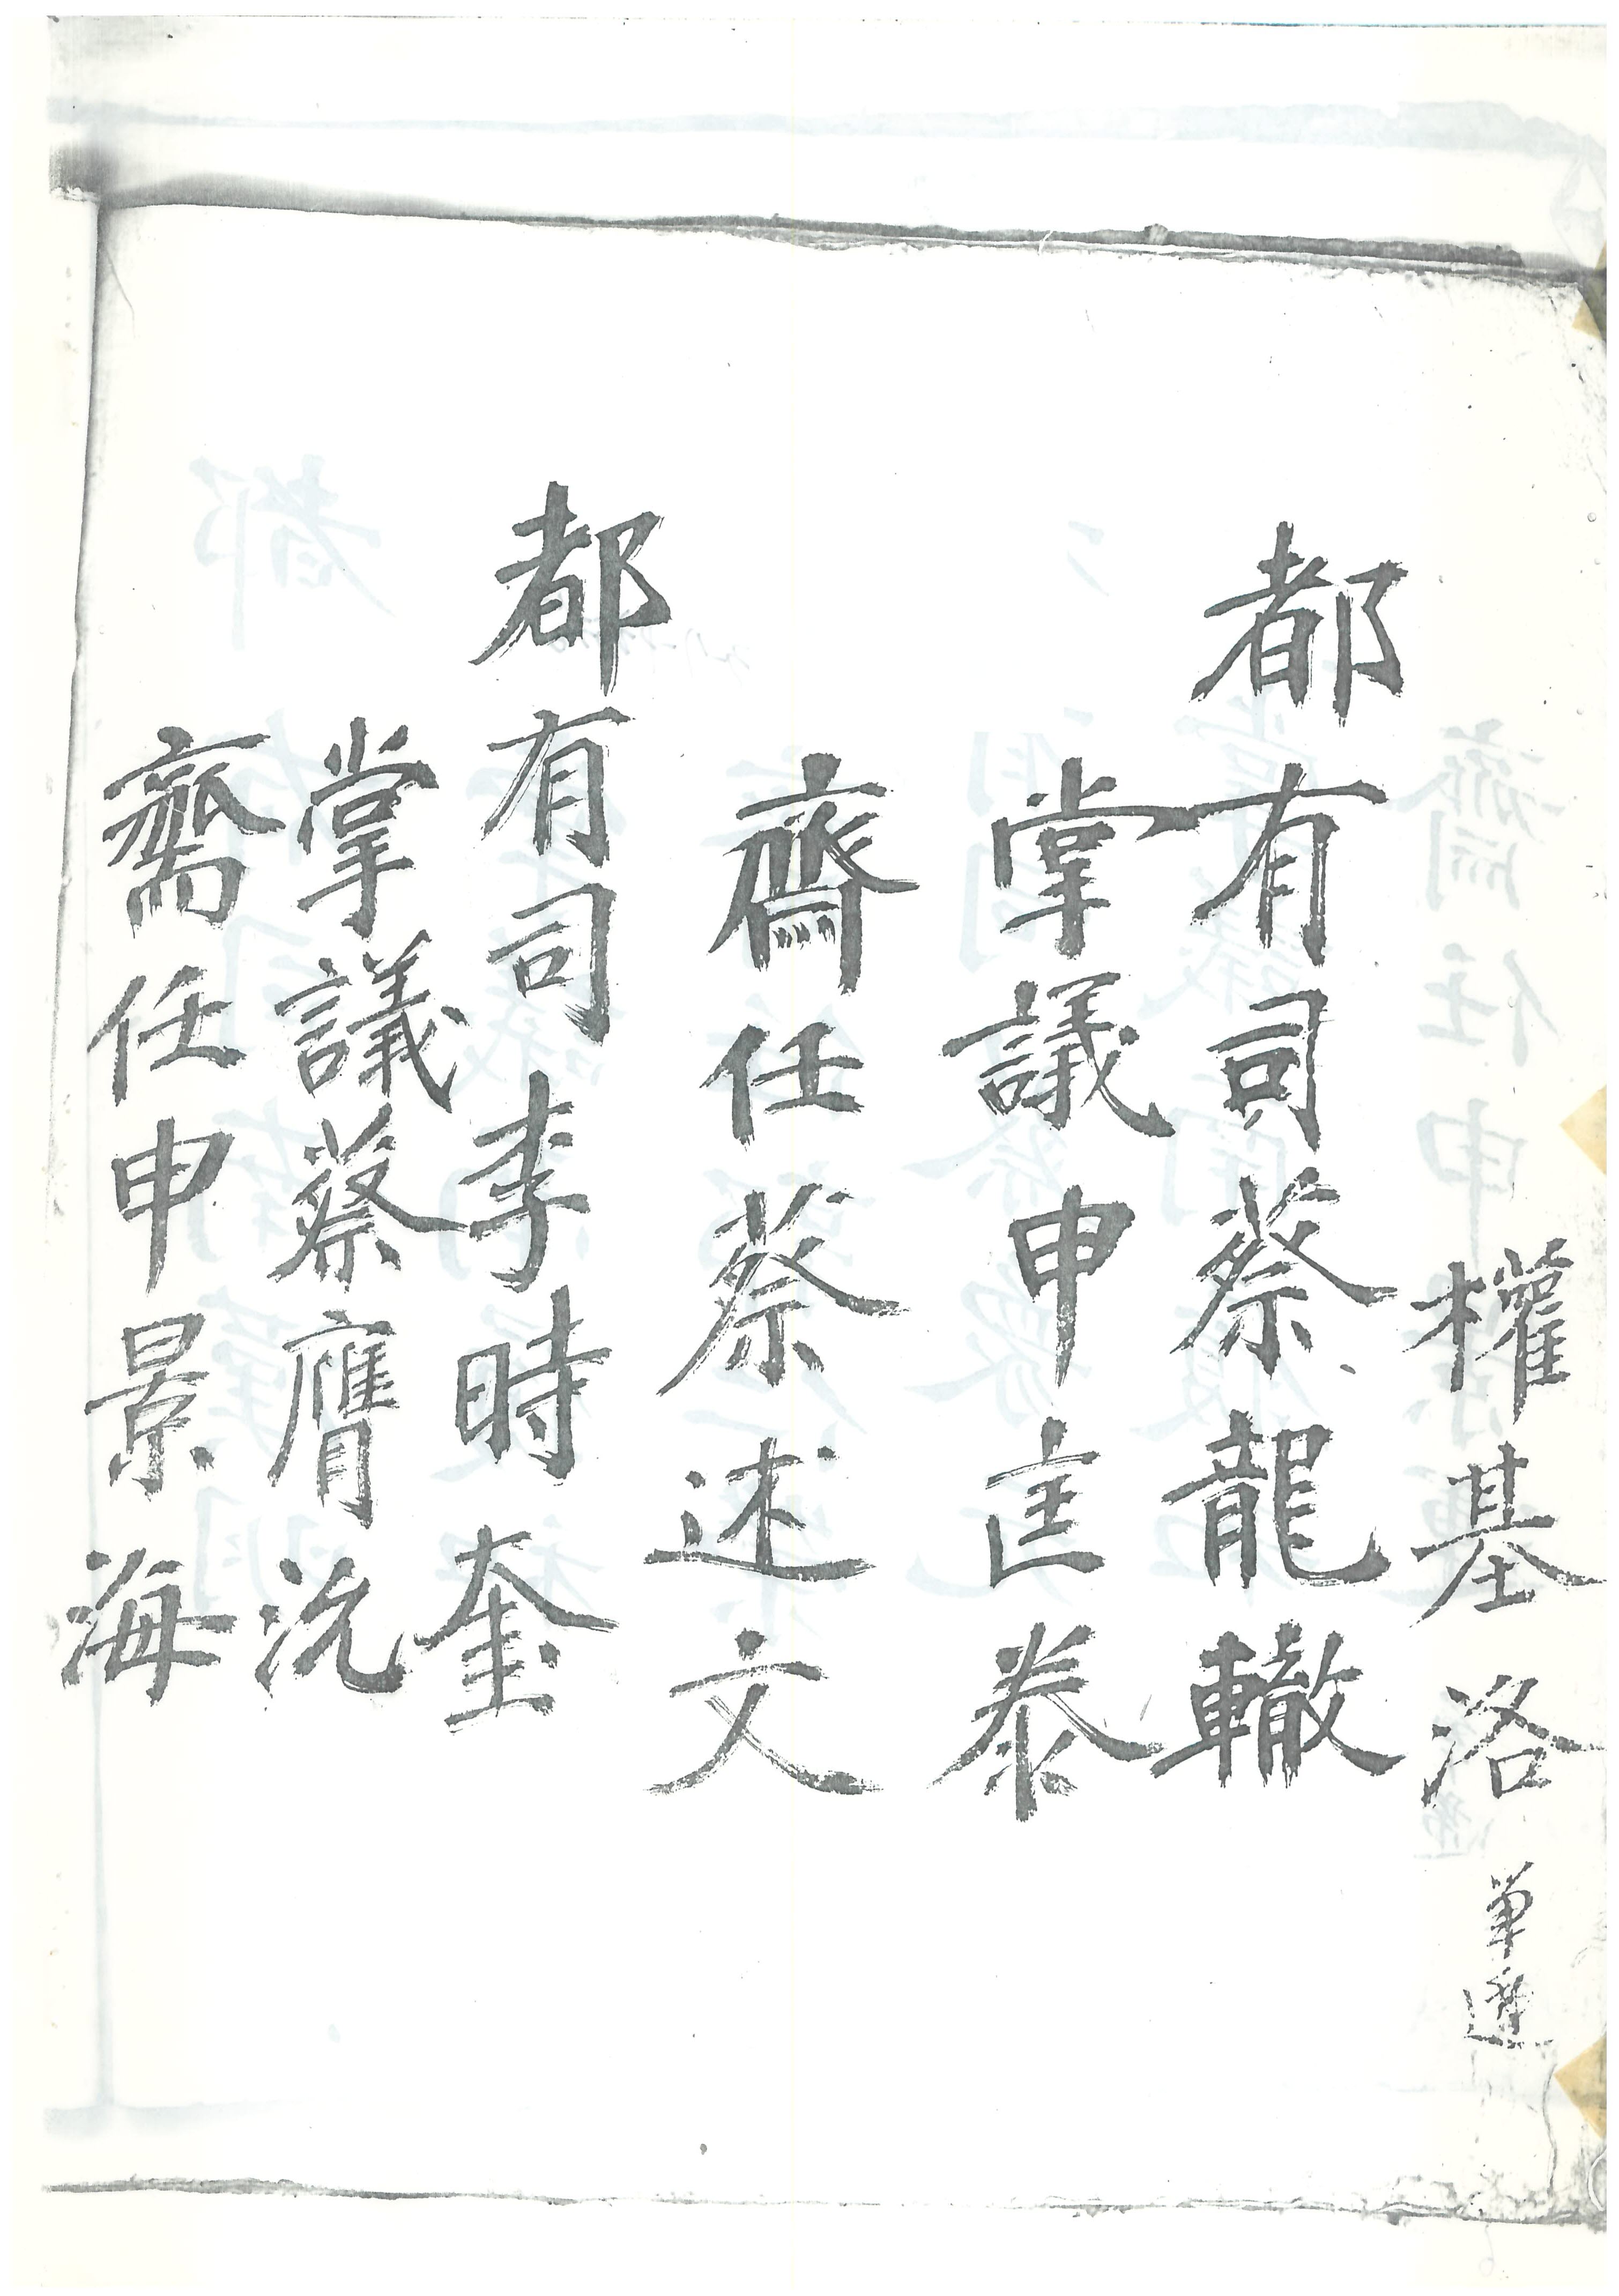 權基洛 單遞
都有司蔡龍轍
掌議申匡泰
齋任蔡述文
都有司李時奎
掌議蔡膺沆
齋任申景海